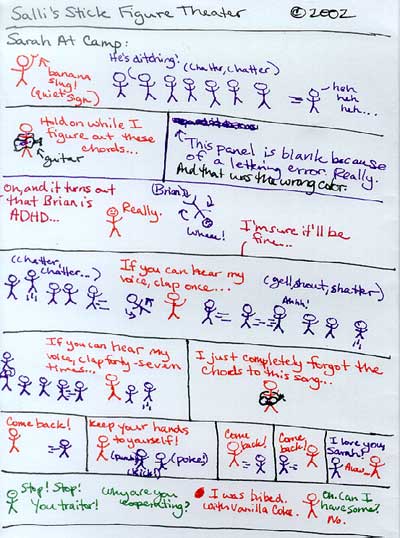 Salli's Stick Figure Theater © 2002
Sarah At Camp:
banana
slug!
(quiet sign)
He's ditching!
(chatter, chatter)
heh
heh
heh...
Hold on while I
figure out these
chords...
guitar
This panel is blank because
of a lettering error. Really.
And that was the wrong color.
Oh, and it turns out
that Brian is
ADHD...
Really.
Brian
Wheee!
I'm sure it'll be
fine...
(chatter,
chatter...)
If you can hear my
voice, clap once...
(yell, shout, shatter)
Ahhh!
If you can hear my
voice, clap forty-seven
times...
I just completely forgot the
chods to this song...
Come back!
Keep your hands
to yourself!
(punch)
(kick!)
(poke!)
Come
back!
Come
back!
I love you,
Sarah!
Aww...
Stop! Stop!
You traitor!
Why are you
cooperating?
I was bribed.
with Vanilla Coke.
Oh. Can I
have some?
No.